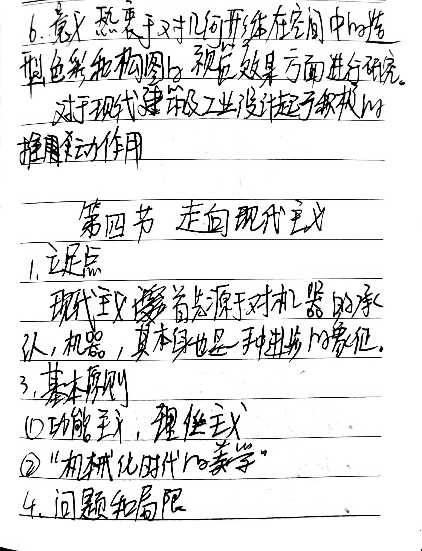 6.意义 热衷于对几何形体在空间中的造
型色彩和构图的视觉效果方面进行研究。
对于现代建筑及工业设计起了积极的
推动作用
第四节 走向现代主义
1.立足点
现代主义首先源于对机器的承
认,机器,其本身也是一种进步的象征。
3.基本原则
①功能主义,理性主义
②"机械化时代的美学"
4.问题和局限